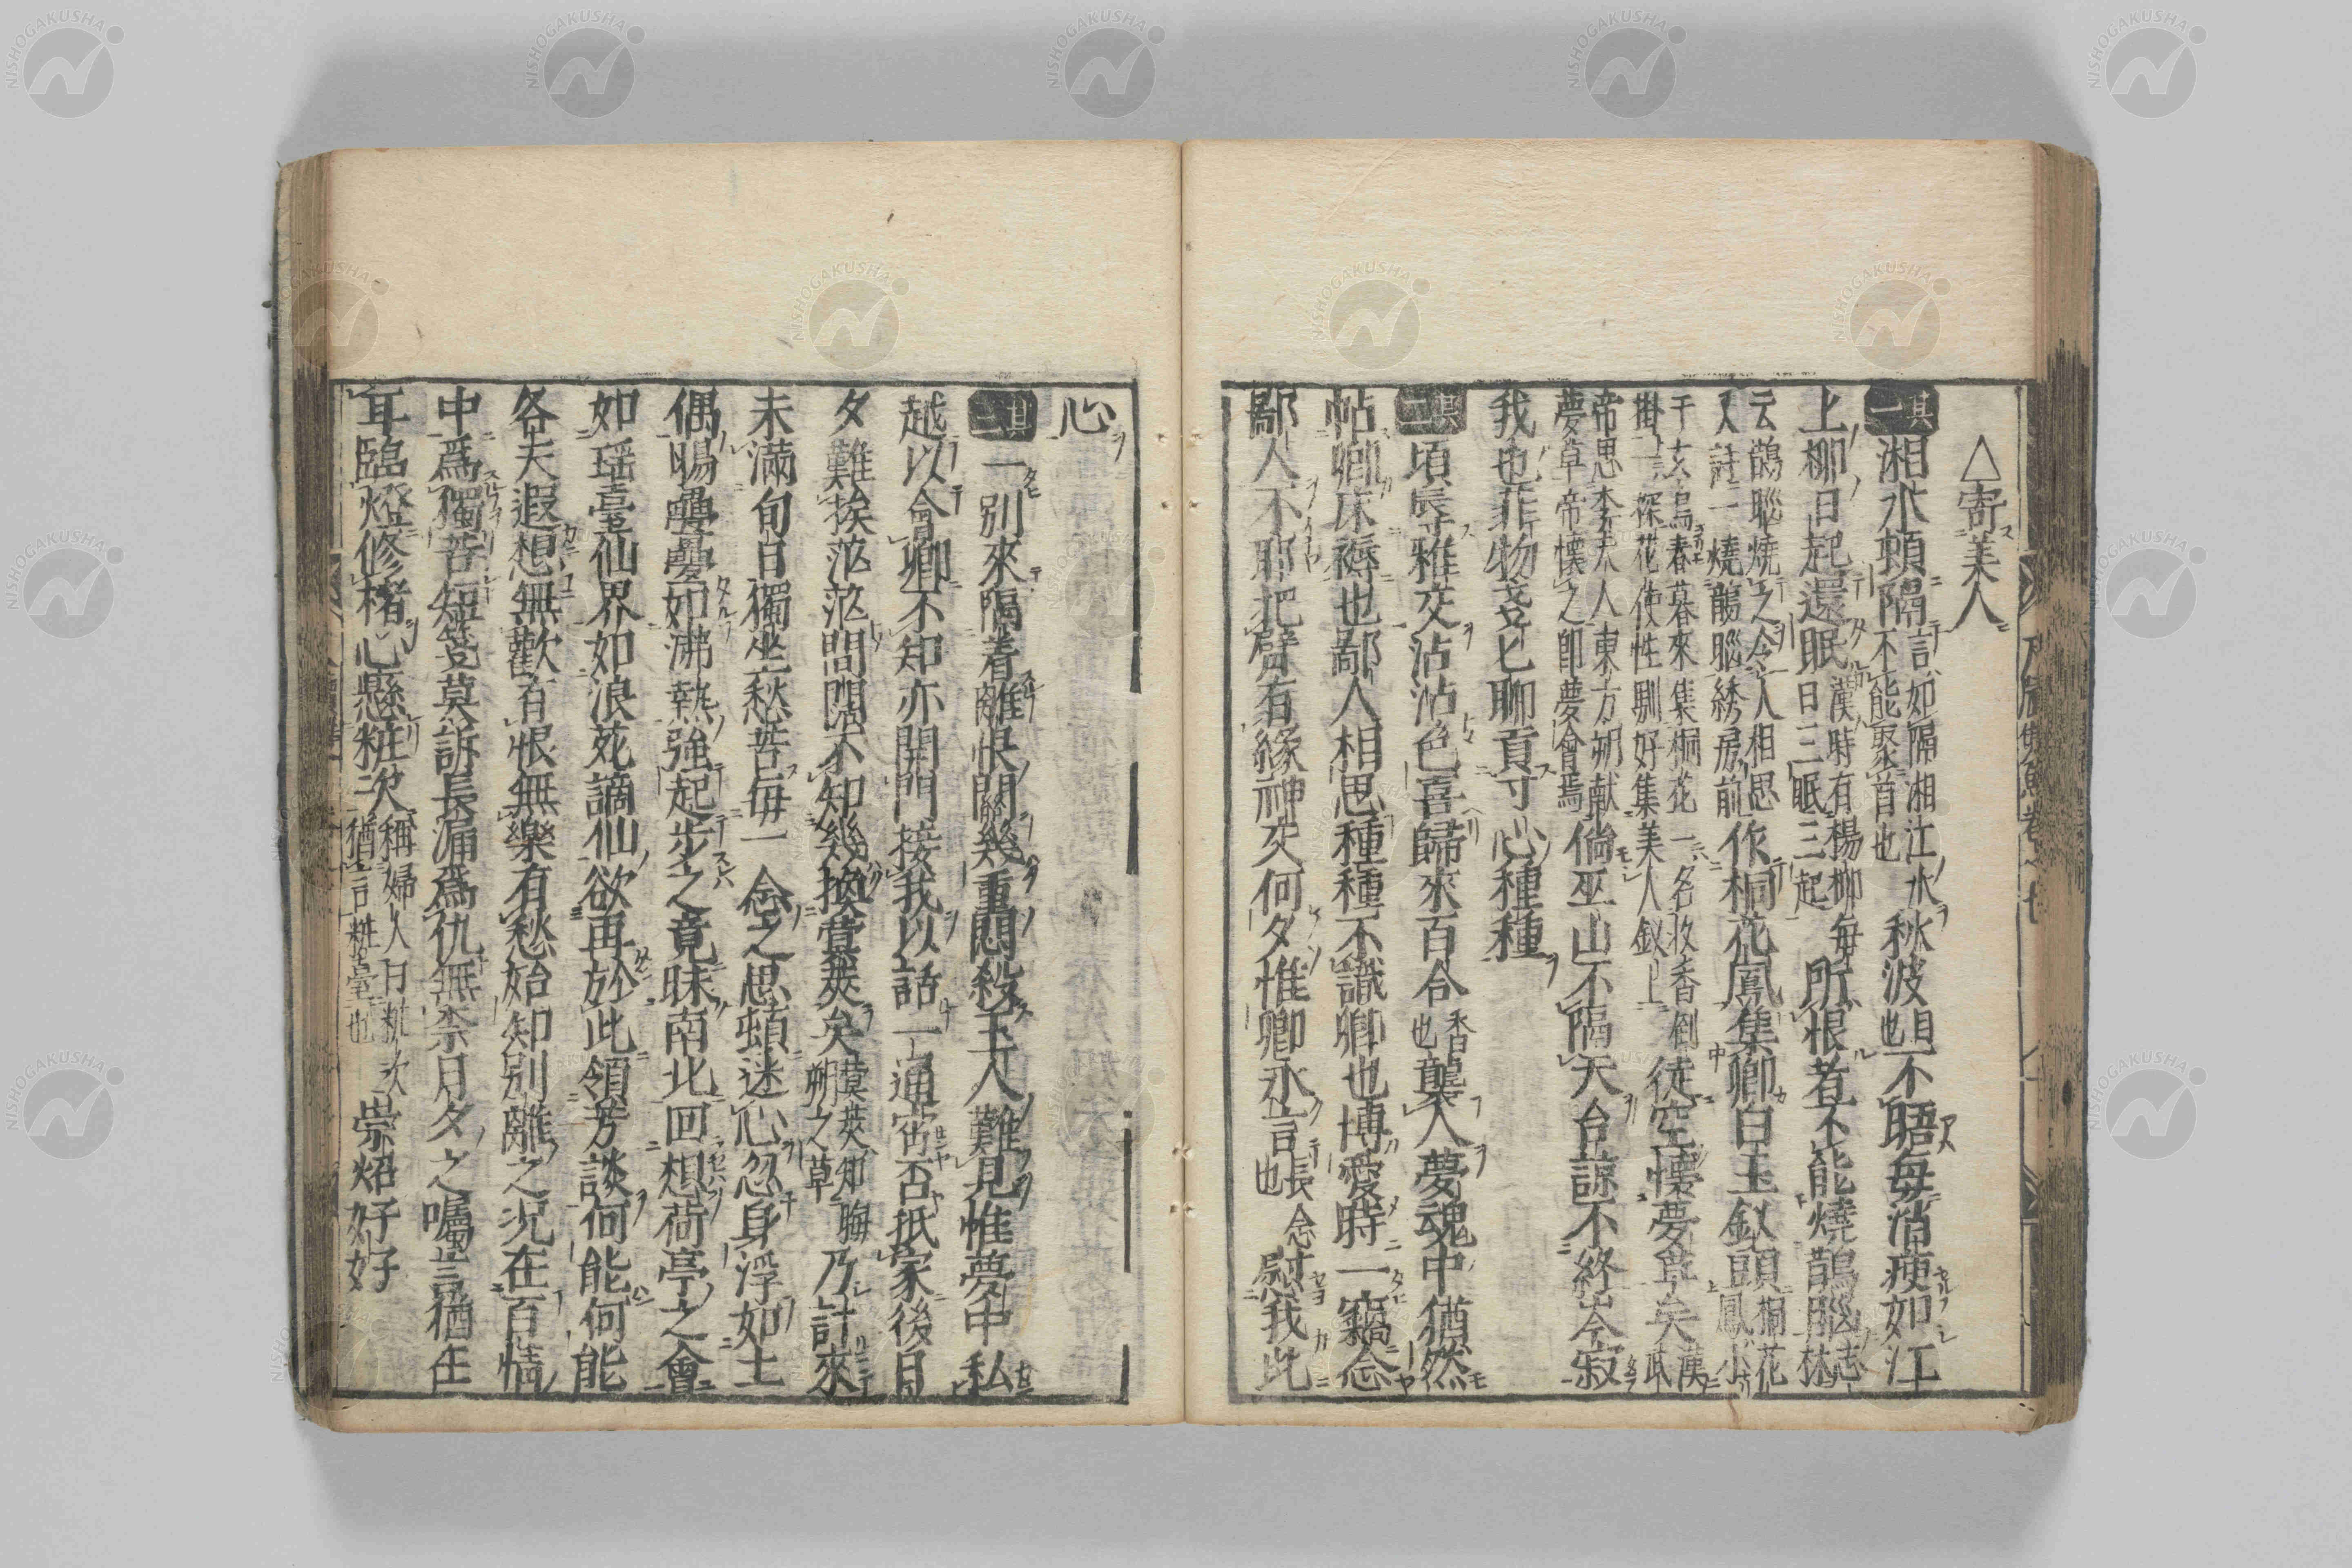 △寄美人
其一 湘水頓隔 言如隔湘江水 不能聚首也 秋波 目也 不晤毎消瘦如江
上柳日起還眠 漢時有楊柳毎 日三眠三起 所恨者不能燒鵲腦 志林
云鵲腦燒之令人相思 又註一燒鵲腦綉房前 作桐花鳳集卿白玉釵頭 桐花鳳小
于玄鳥春暮來集桐花一名收香倒 掛 探花使性馴好集美人釵上 徒空懷夢草矣 漢武
帝思李夫人東方朔献 夢草帝懷之即夢會焉 倘巫山不隔天台諒不終岑寂
我也菲物戔匕聊貢寸心種種
其二 頃辱雅文沾沾色喜歸來百合 香也 襲人夢魂中猶然
帖卿床褥也鄙人相思種種不識卿也博愛時一竊念
鄙人不耶把臂有緣神交何夕惟卿永言 長念也 慰我此
心
其三 一別來隔着離恨関幾重悶殺玉人難見惟夢中私
越以會卿不知亦開門接我以話一通宵否抵家後日
夕難挨茫茫問開不知幾換蓂莢矣 蓂莢知晦 朔之草 乃計來
未滿旬日獨坐愁苦毎一念之思頓迷心忽身浮如土
偶暘疊疊如沸熱強起步之竟昧南北回想荷亭之會
如瑶臺仙界如浪苑謫仙欲再於此領芳談何能何能
各天遐想無歡有恨無樂有愁始知別離之況在百情
中爲獨苦短箋莫訴長漏爲仇無柰月夕之囑言猶在
耳臨燈修楮心懸粧次 稱婦人曰粧次 猶言粧臺也 崇炤好好